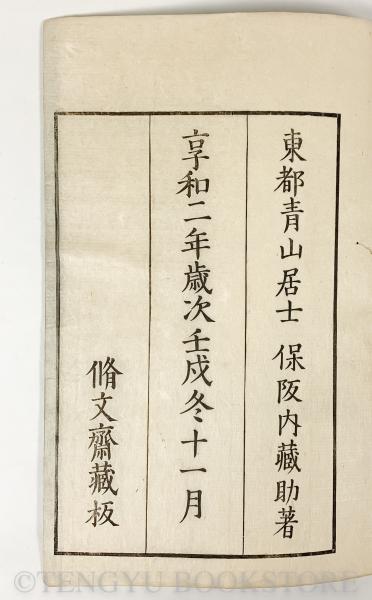 東都青山居士 保阪内藏助著
享和二年歳次壬戌冬十一月
脩文齋藏板
©TENGYU BOOKSTORE